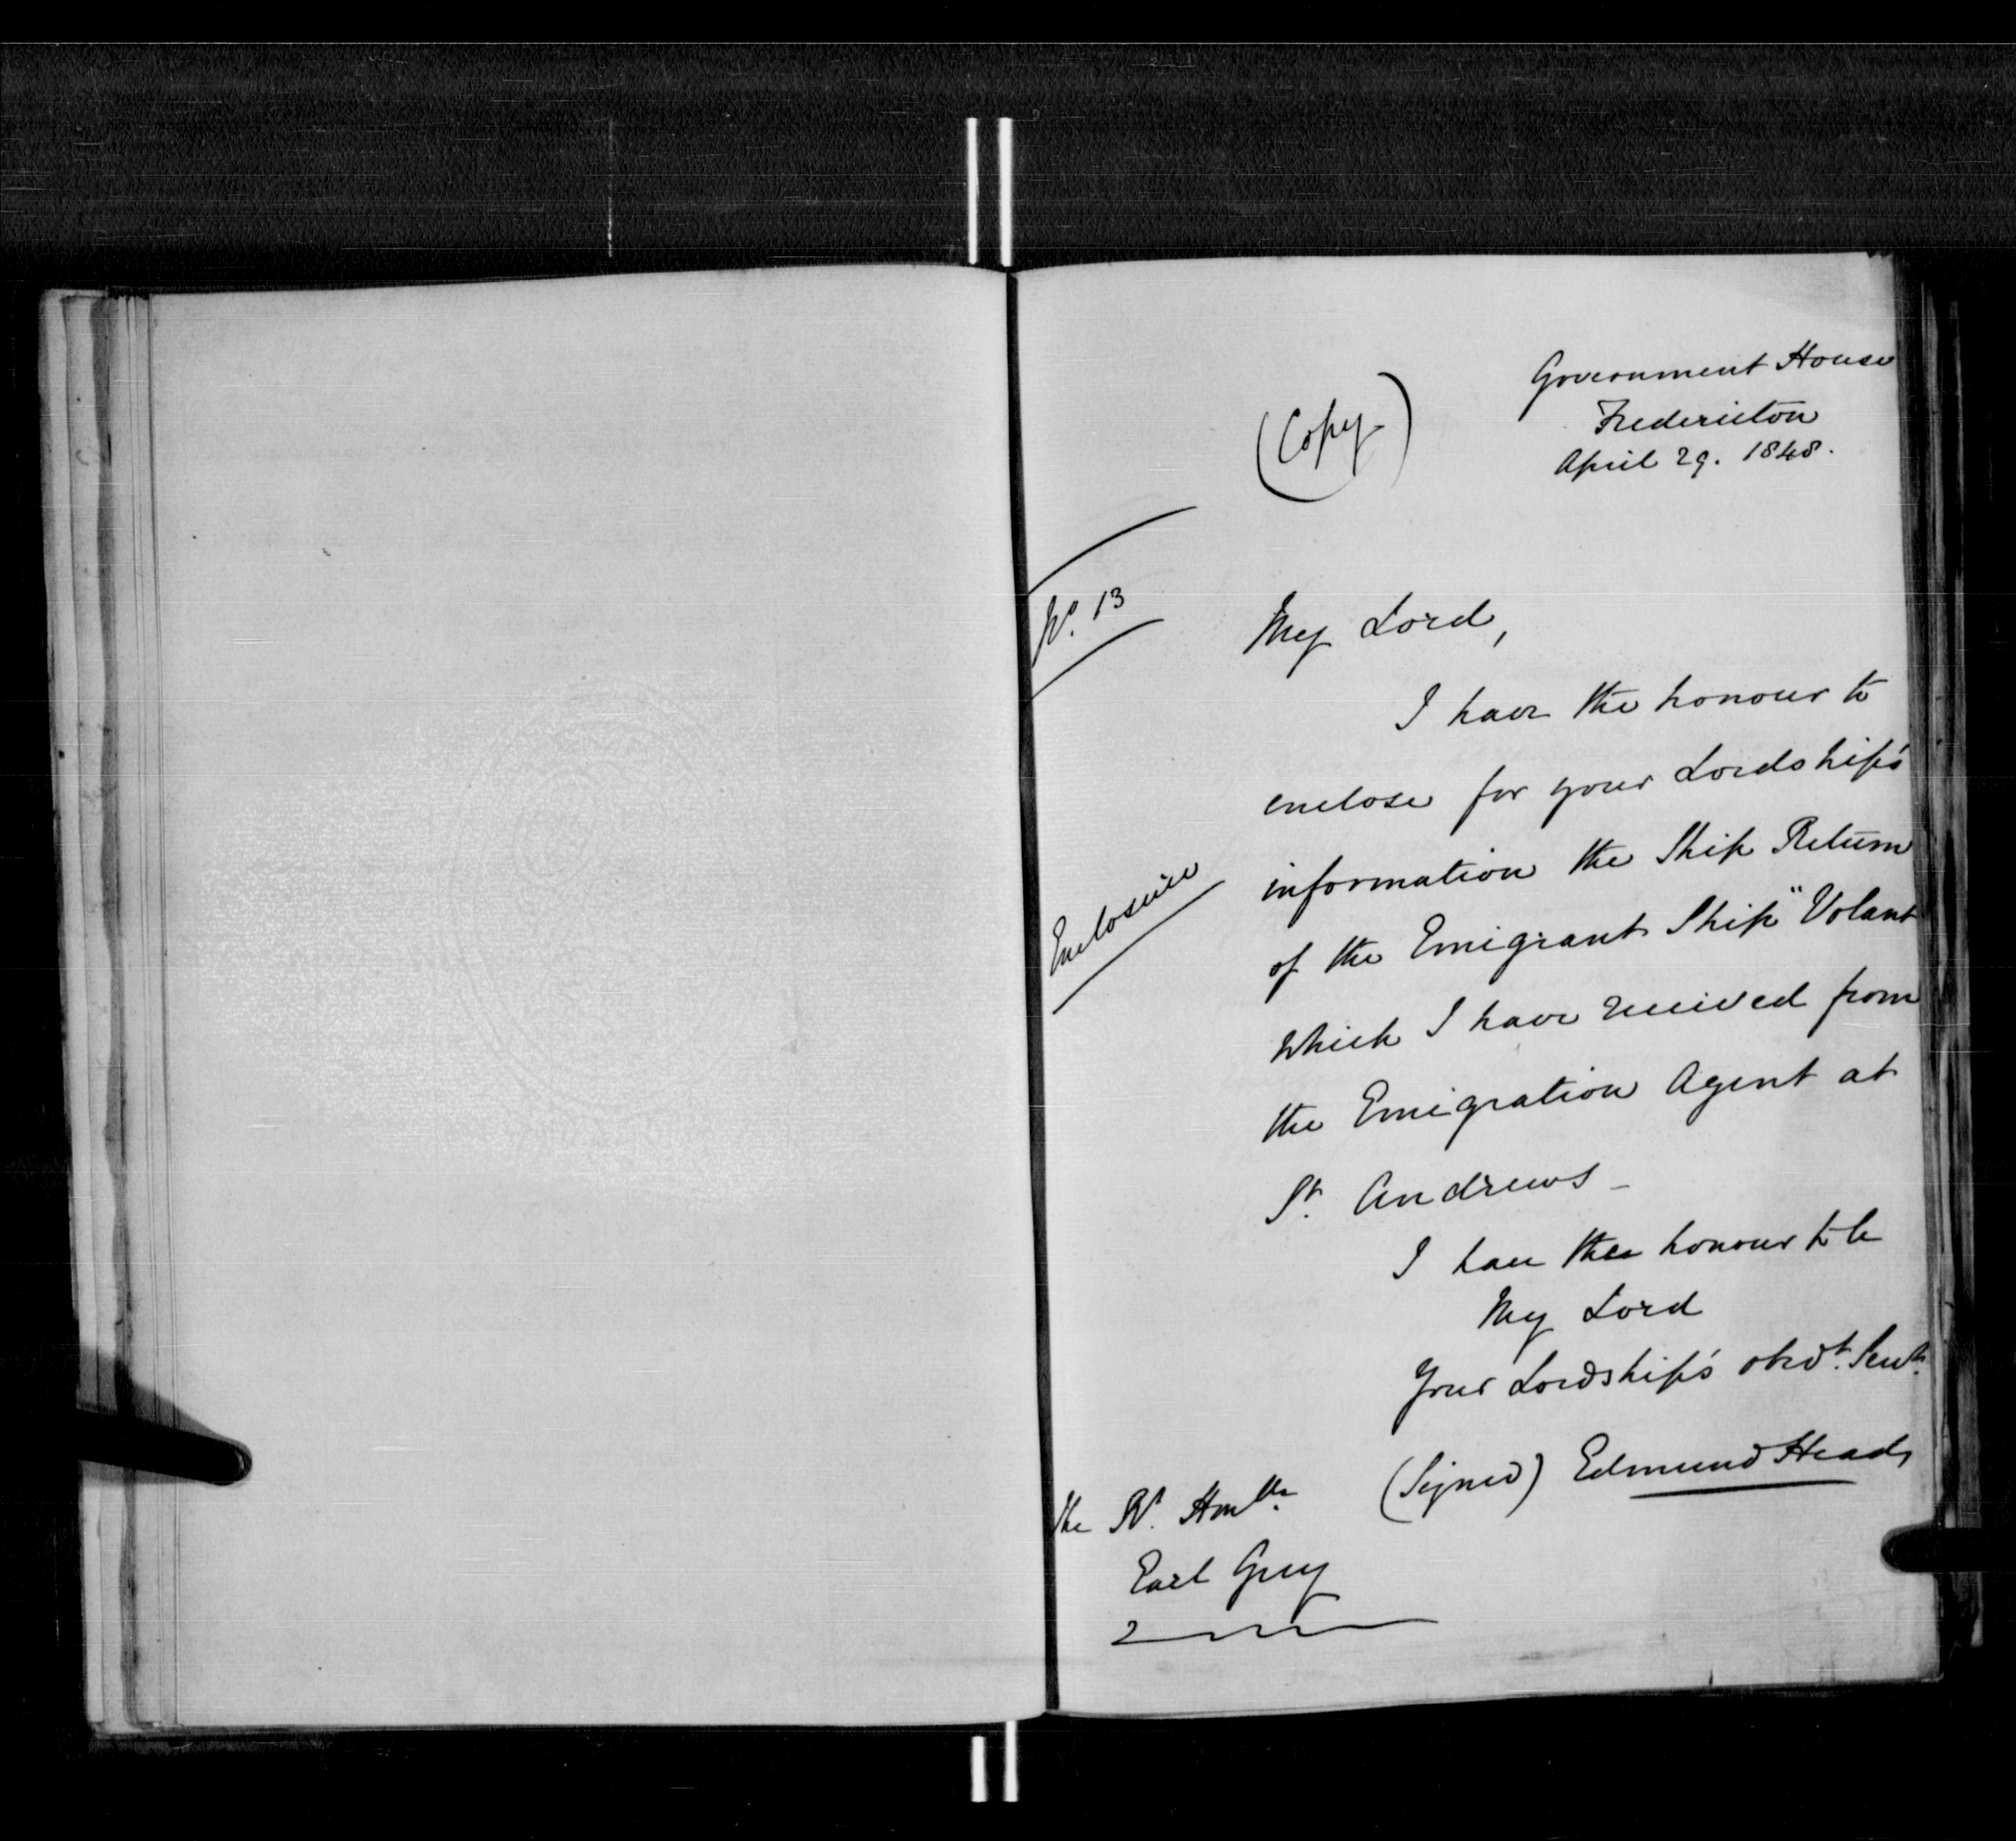 Government House
Fredericton
April 29. 1848.
(Copy)
No. 13
My Lord,
I have the honour to
enclose for your Lordship's
information the Ship Return
Enclosure
of the Emigrant Ship "Volant
which I have received from
the Emigration Agent at
St. Andrews -
I have the honour to be
My Lord
Your Lordship's obedt. Servt.
(Signed) Edmund Head
The Rt. Honble.
Earl Grey